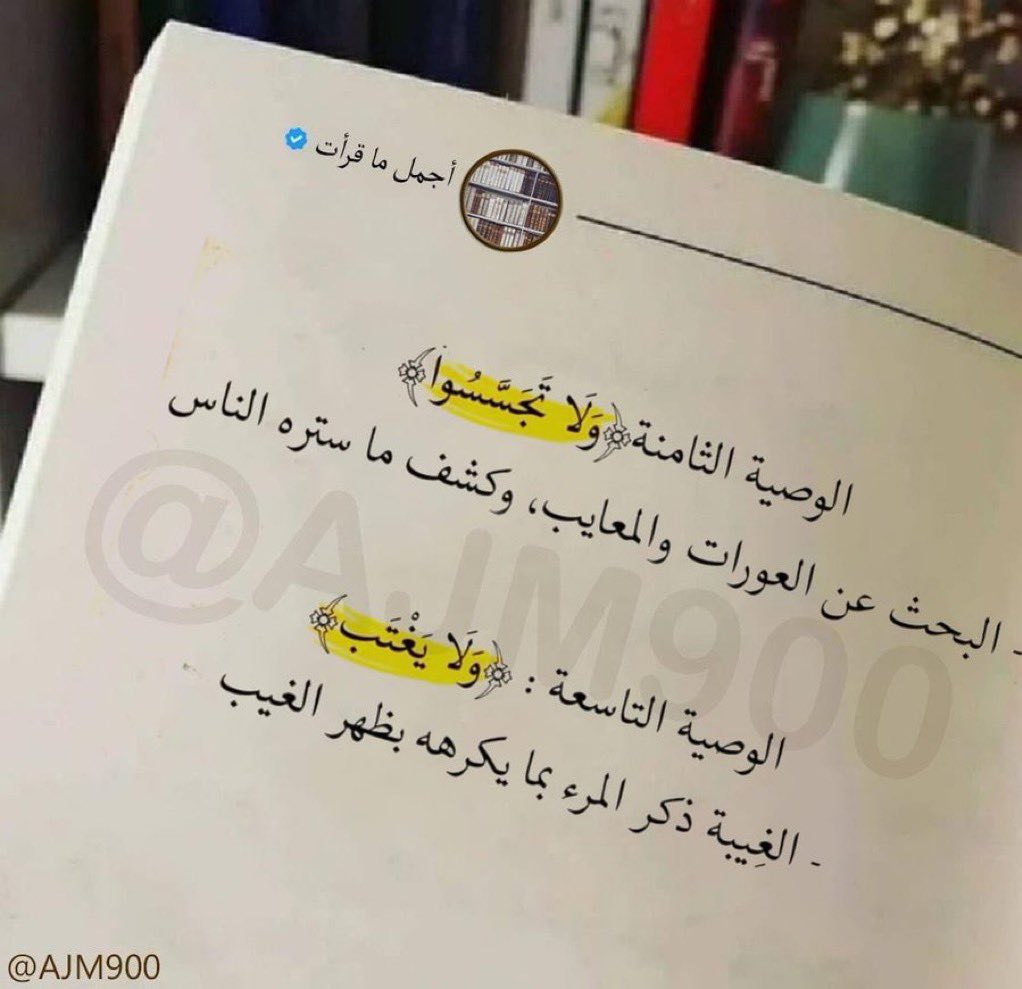 أجمل ما قرأت
الوصية الثامنة ﴿وَلَا تَجَسَّسُوا﴾
- البحث عن العورات والمعايب، وكشف ما ستره الناس
الوصية التاسعة : ﴿وَلَا يَغْتَب﴾
- الغِيبة ذكر المرء بما يكرهه بظهر الغيب
@AJM900
@AJM900